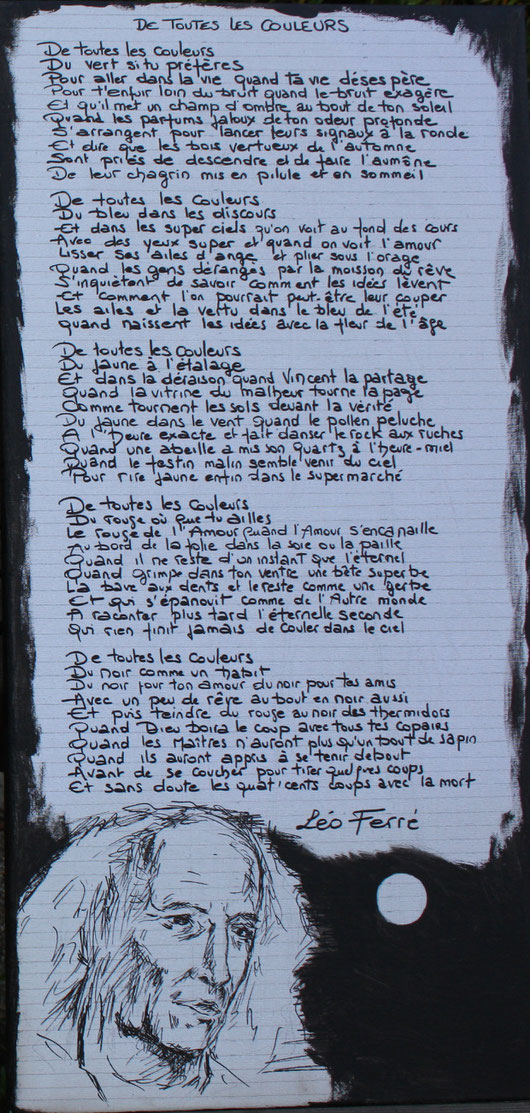 DE TOUTES LES COULEURS
De toutes les couleurs
Du vert si tu préfères
Pour aller dans la vie quand ta vie désespère
Pour t'enfuir loin du bruit quand le bruit exagère
Et qu'il met un champ d'ombre au bout de ton soleil
Quand les parfums jaloux de ton odeur profonde
S'arrangent pour lancer leurs signaux à la ronde
Et dire que les bois vertueux de l'automne
Sont priés de descendre et de faire l'aumône
De leur chagrin mis en pilule et en sommeil
De toutes les couleurs
Du bleu dans les discours
Et dans les super ciels qu'on voit au fond des cours
Avec des yeux super et quand on voit l'amour
Lisser ses ailes d'ange et plier sous l'orage
Quand les gens dérangés par la moisson du rêve
S'inquiètent de savoir comment les idées lèvent
Et comment l'on pourrait peut-être leur couper
Les ailes et la vertu dans le bleu de l'été
quand naissent les idées avec la fleur de l'âge
De toutes les couleurs
Du jaune à l'étalage
Et dans la déraison quand Vincent la partage
Quand la vitrine du malheur tourne la page
Comme tournent les sols devant la vérité
Du jaune dans le vent quand le pollen peluche
À l'heure exacte et fait danser le rock aux ruches
Quand une abeille a mis son quartz à l'heure-miel
Quand le festin malin semble venir du ciel
Pour rire jaune enfin dans le supermarché
De toutes les couleurs
Du rouge où que tu ailles
Le rouge de l'Amour quand l'Amour s'encanaille
Au bord de la folie dans la soie ou la paille
Quand il ne reste d'un instant que l'éternel
Quand grimpe dans ton ventre une bête superbe
La bave aux dents et le reste comme une gerbe
Et qui s'épanouit comme de l'Autre monde
A raconter plus tard l'éternelle seconde
Qui n'en finit jamais de couler dans le ciel
De toutes les couleurs
Du noir comme un habit
Du noir pour ton amour du noir pour tes amis
Avec un peu de rêve au bout en noir aussi
Et puis teindre du rouge au noir des thermidors
Quand Dieu boira le coup avec tous tes copains
Quand les Maîtres n'auront plus qu'un bout de sapin
Quand ils auront appris à se tenir debout
Avant de se coucher pour tirer quelques coups
Et sans doute les quat'cents coups avec la mort
Léo Ferré